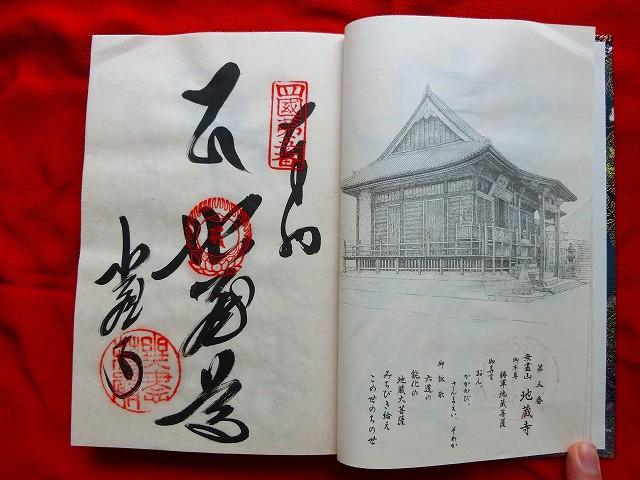 奉納
四國第五番
地蔵尊
地蔵寺
第五番
無盡山 地蔵寺
御本尊 勝軍地蔵菩薩
御真言
おん、
かかかび、
さんまえい、そわか
御詠歌
六道の
能化の
地蔵大菩薩
みちびき給え
このせのちのせ